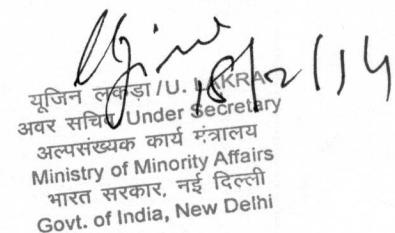 18/2/14
यूजिन लकड़ा/U. LAKRA
अवर सचिव/Under Secretary
अल्पसंख्यक कार्य मंत्रालय
Ministry of Minority Affairs
भारत सरकार, नई दिल्ली
Govt. of India, New Delhi